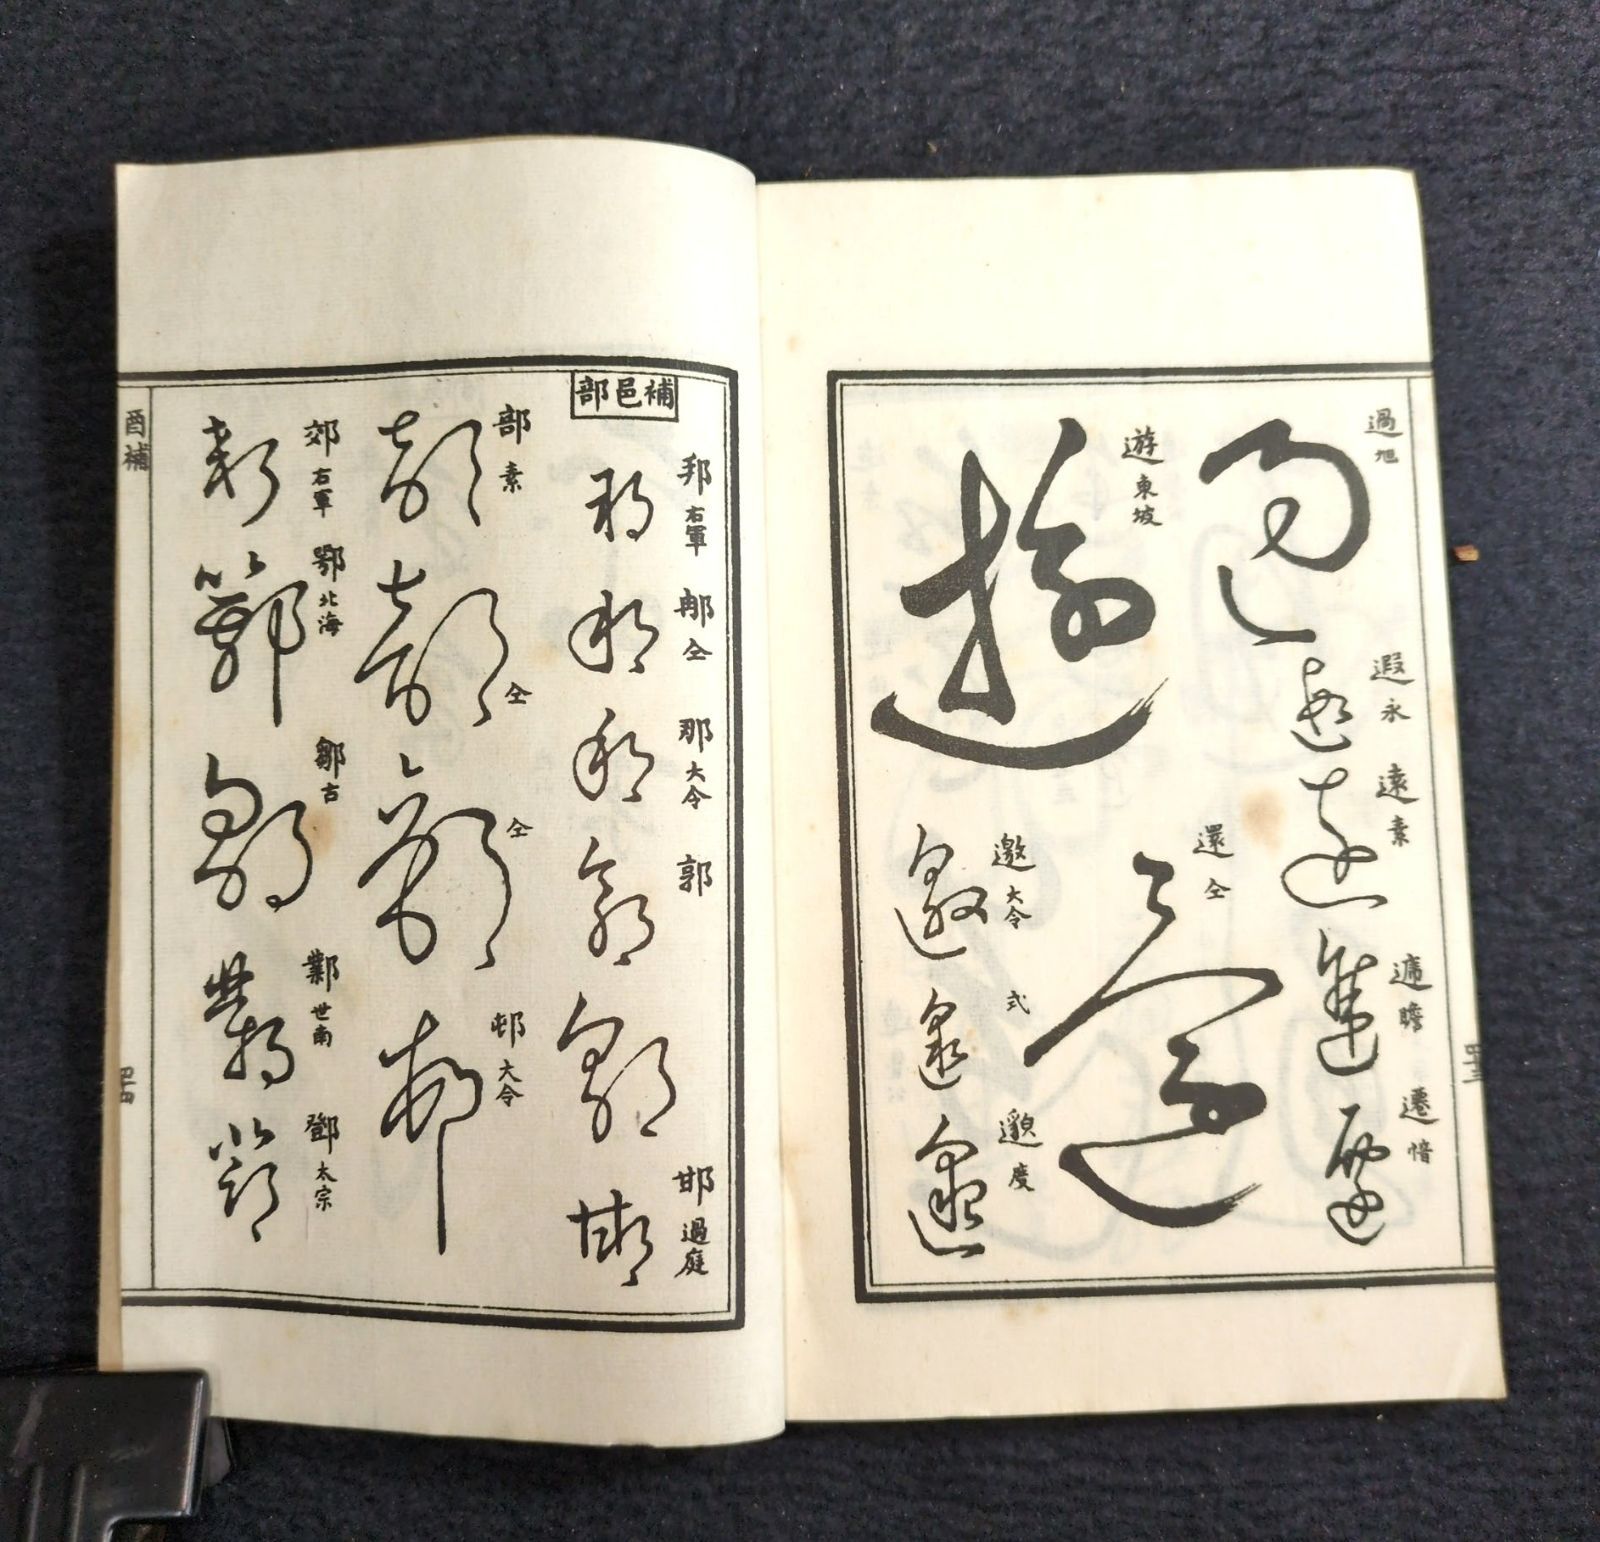 過 旭
遐 永
遠 素
遮 瞻
遷 愔
遊 東坡
還 仝
邀 大令
式
邈 度
四十三
補邑部
邦 右軍
郍 仝
那 大令
郭
邯 過庭
部 素
仝
仝
邨 大令
郊 右軍
鄂 北海
鄒 古
鄴 世南
鄧 太宗
酉補